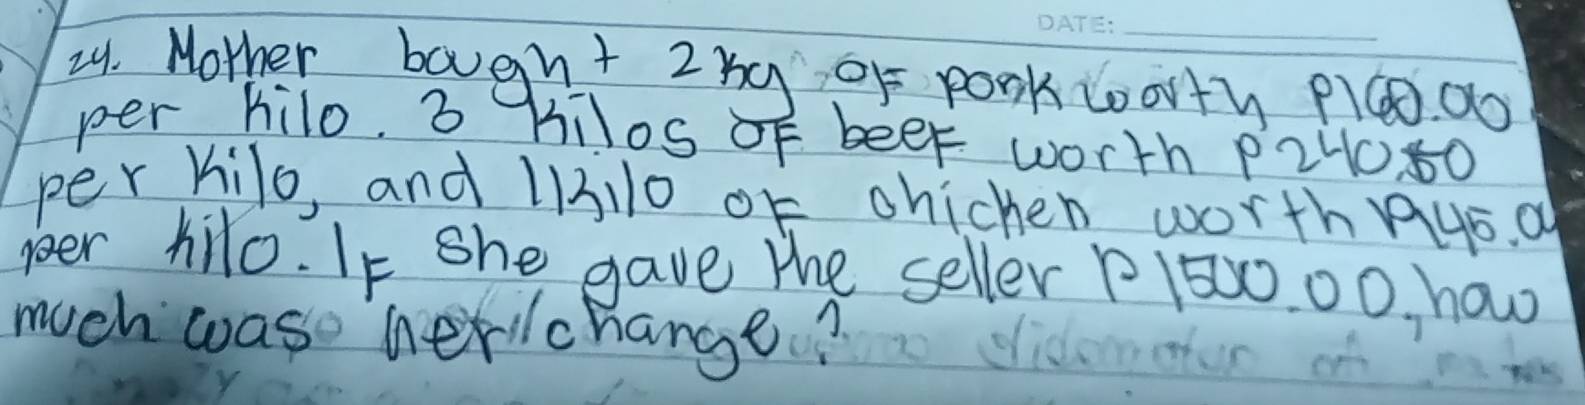 DATE:
24. Mother baught 2 kg of pork worth P160.00
per kilo. 3 kilos of beef worth P240.50
per kilo, and 1 kilo of chicken worth P145.0
per kilo. If she gave the seller P1500.00, how
much was her change?